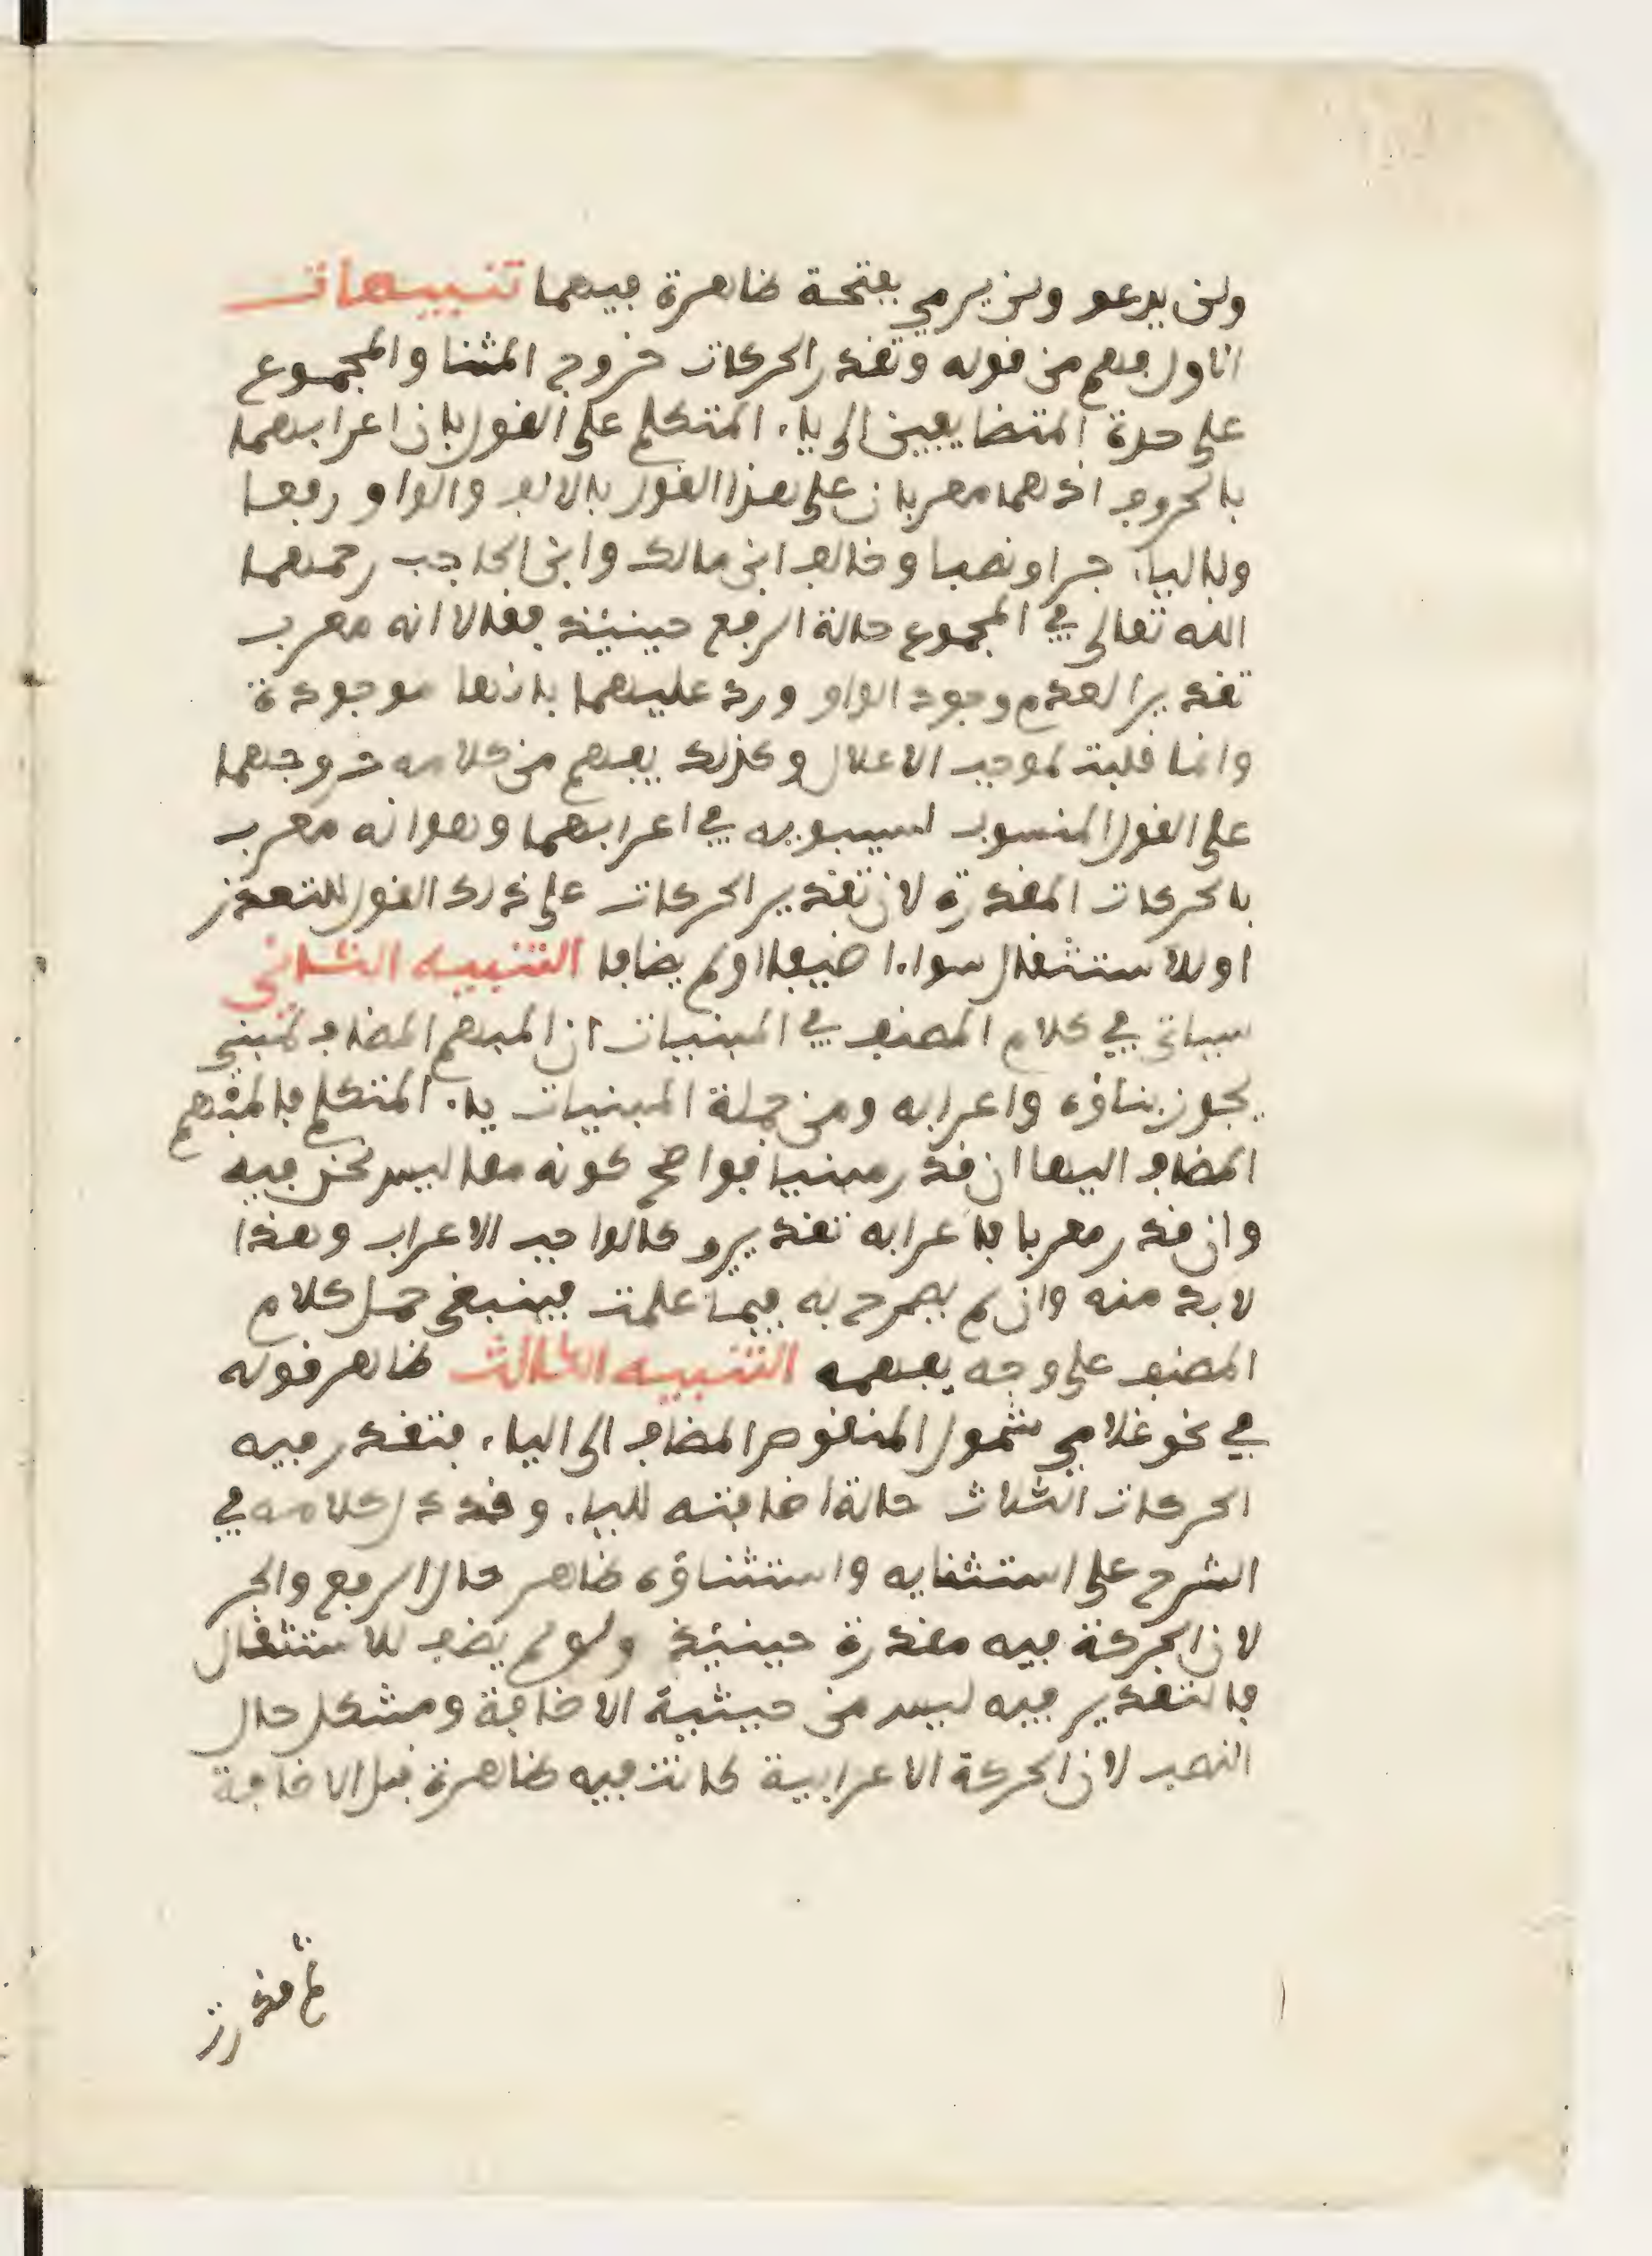 ولن يدعو ولن يرمي بفتحة ظاهرة فيهما تنبيهات
الاول فهم من قوله وتقدر الحركات خروج المثنا والمجموع
على حدة المتضايفين الى ياء المتكلم على القول بان اعرابهما
بالحروف اذ هما معربان على هذا القول بالالف والواو رفعا
وبالياء جرا ونصبا وخالف ابن مالك وابن الحاجب رحمهما
الله تعالى في المجموع حالة الرفع حينئذ فقالا انه معرب
تقديرا لعدم وجود الواو ورد عليهما بانها موجودة
وانما قلبت لموجب الاعلال وكذلك يفهم من كلامه خروجهما
على القول المنسوب لسيبويه في اعرابهما وهو انه معرب
بالحركات المقدرة لان تقدير الحركات على ذلك القول للتعذر
او للاستثقال سواء اضيفا او لم يضافا التنبيه الثاني
سياتي في كلام المصنف في المبنيات ان المبهم المضاف لمبني
يجوز بناؤه واعرابه ومن جملة المبنيات ياء المتكلم فالمبهم
المضاف اليها ان قدر مبنيا فواضح كونه مما ليس نحن فيه
وان قدر معربا فاعرابه تقديرو كالواجب الاعراب وهذا
لابد منه وان لم يصرح به فيما علمت فينبغي حمل كلام
المصنف على وجه يعمه التنبيه الثالث ظاهر قوله
في نحو غلامي شمول المنقوص المضاف الى الياء فتقدر فيه
الحركات الثلاث حالة اضافته للياء وقد دل كلامه في
الشرح على استثنايه واستثناؤه ظاهر حال الرفع والجر
لان الحركة فيه مقدرة حينئذ ولو لم يضف للاستثقال
فالتقدير فيه ليس من حيثية الاضافة ومشكل حال
النصب لان الحركة الاعرابية كانت فيه ظاهرة قبل الاضافة
ثم قدرت